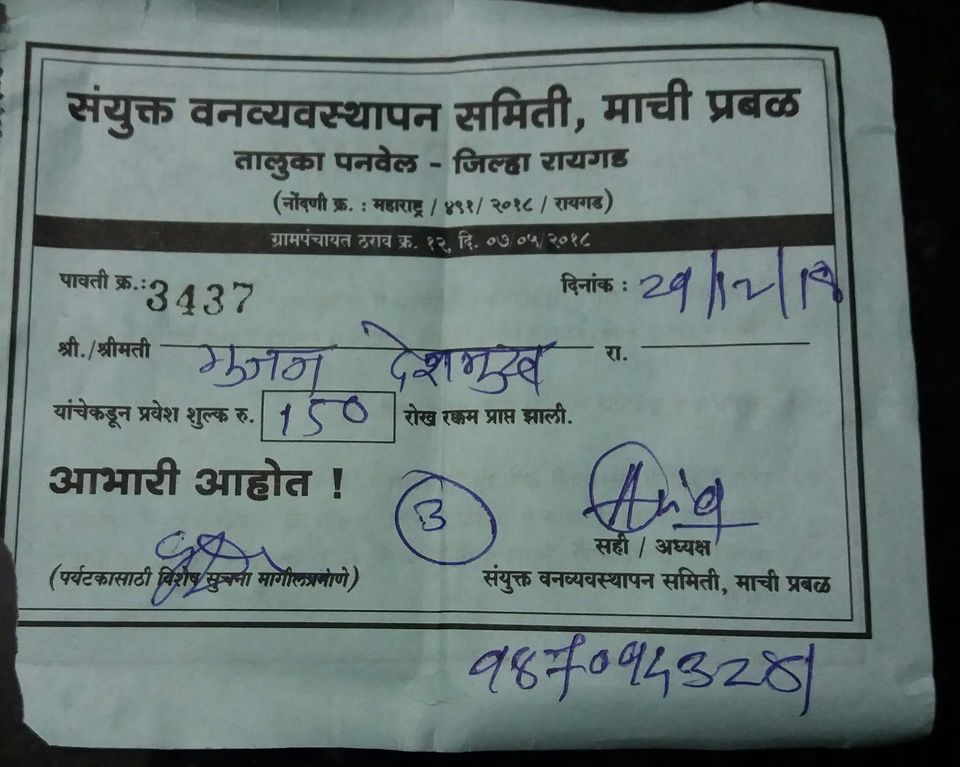 संयुक्त वनव्यवस्थापन समिती, माची प्रबळ
तालुका पनवेल - जिल्हा रायगड
(नोंदणी क्र. : महाराष्ट्र / ४९१/ २०१८ / रायगड)
ग्रामपंचायत ठराव क्र. १२, दि. ०७/०५/२०१८
पावती क्र.: 3437 दिनांक : 29/12/19
श्री./श्रीमती गुजन देशमुख रा.
यांचेकडून प्रवेश शुल्क रु. 150 रोख रक्कम प्राप्त झाली.
आभारी आहोत !
3
सही / अध्यक्ष
(पर्यटकासाठी विशेष सुचना मागीलप्रमाणे) संयुक्त वनव्यवस्थापन समिती, माची प्रबळ